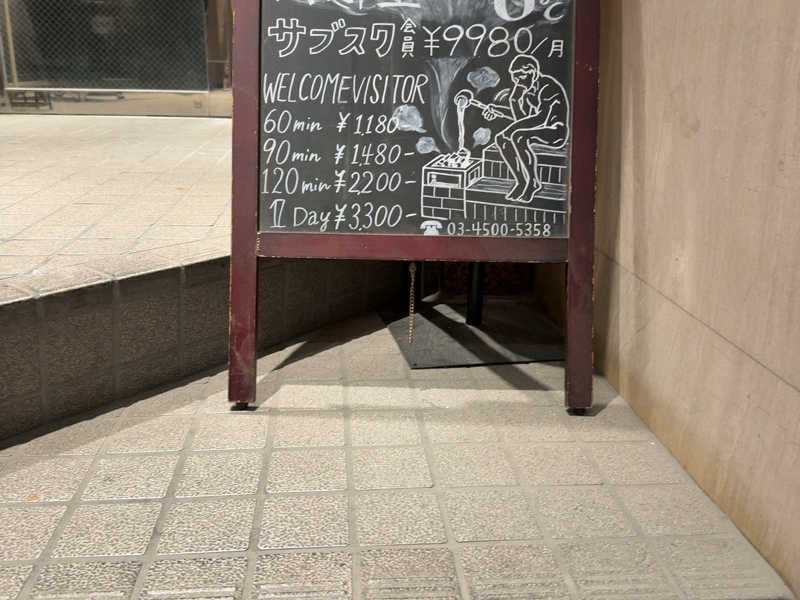 サブスク会員 ¥9980/月
WELCOME VISITOR
60min ¥1,180-
90min ¥1,480-
120min ¥2,200-
1 Day ¥3,300-
☎ 03-4500-5358